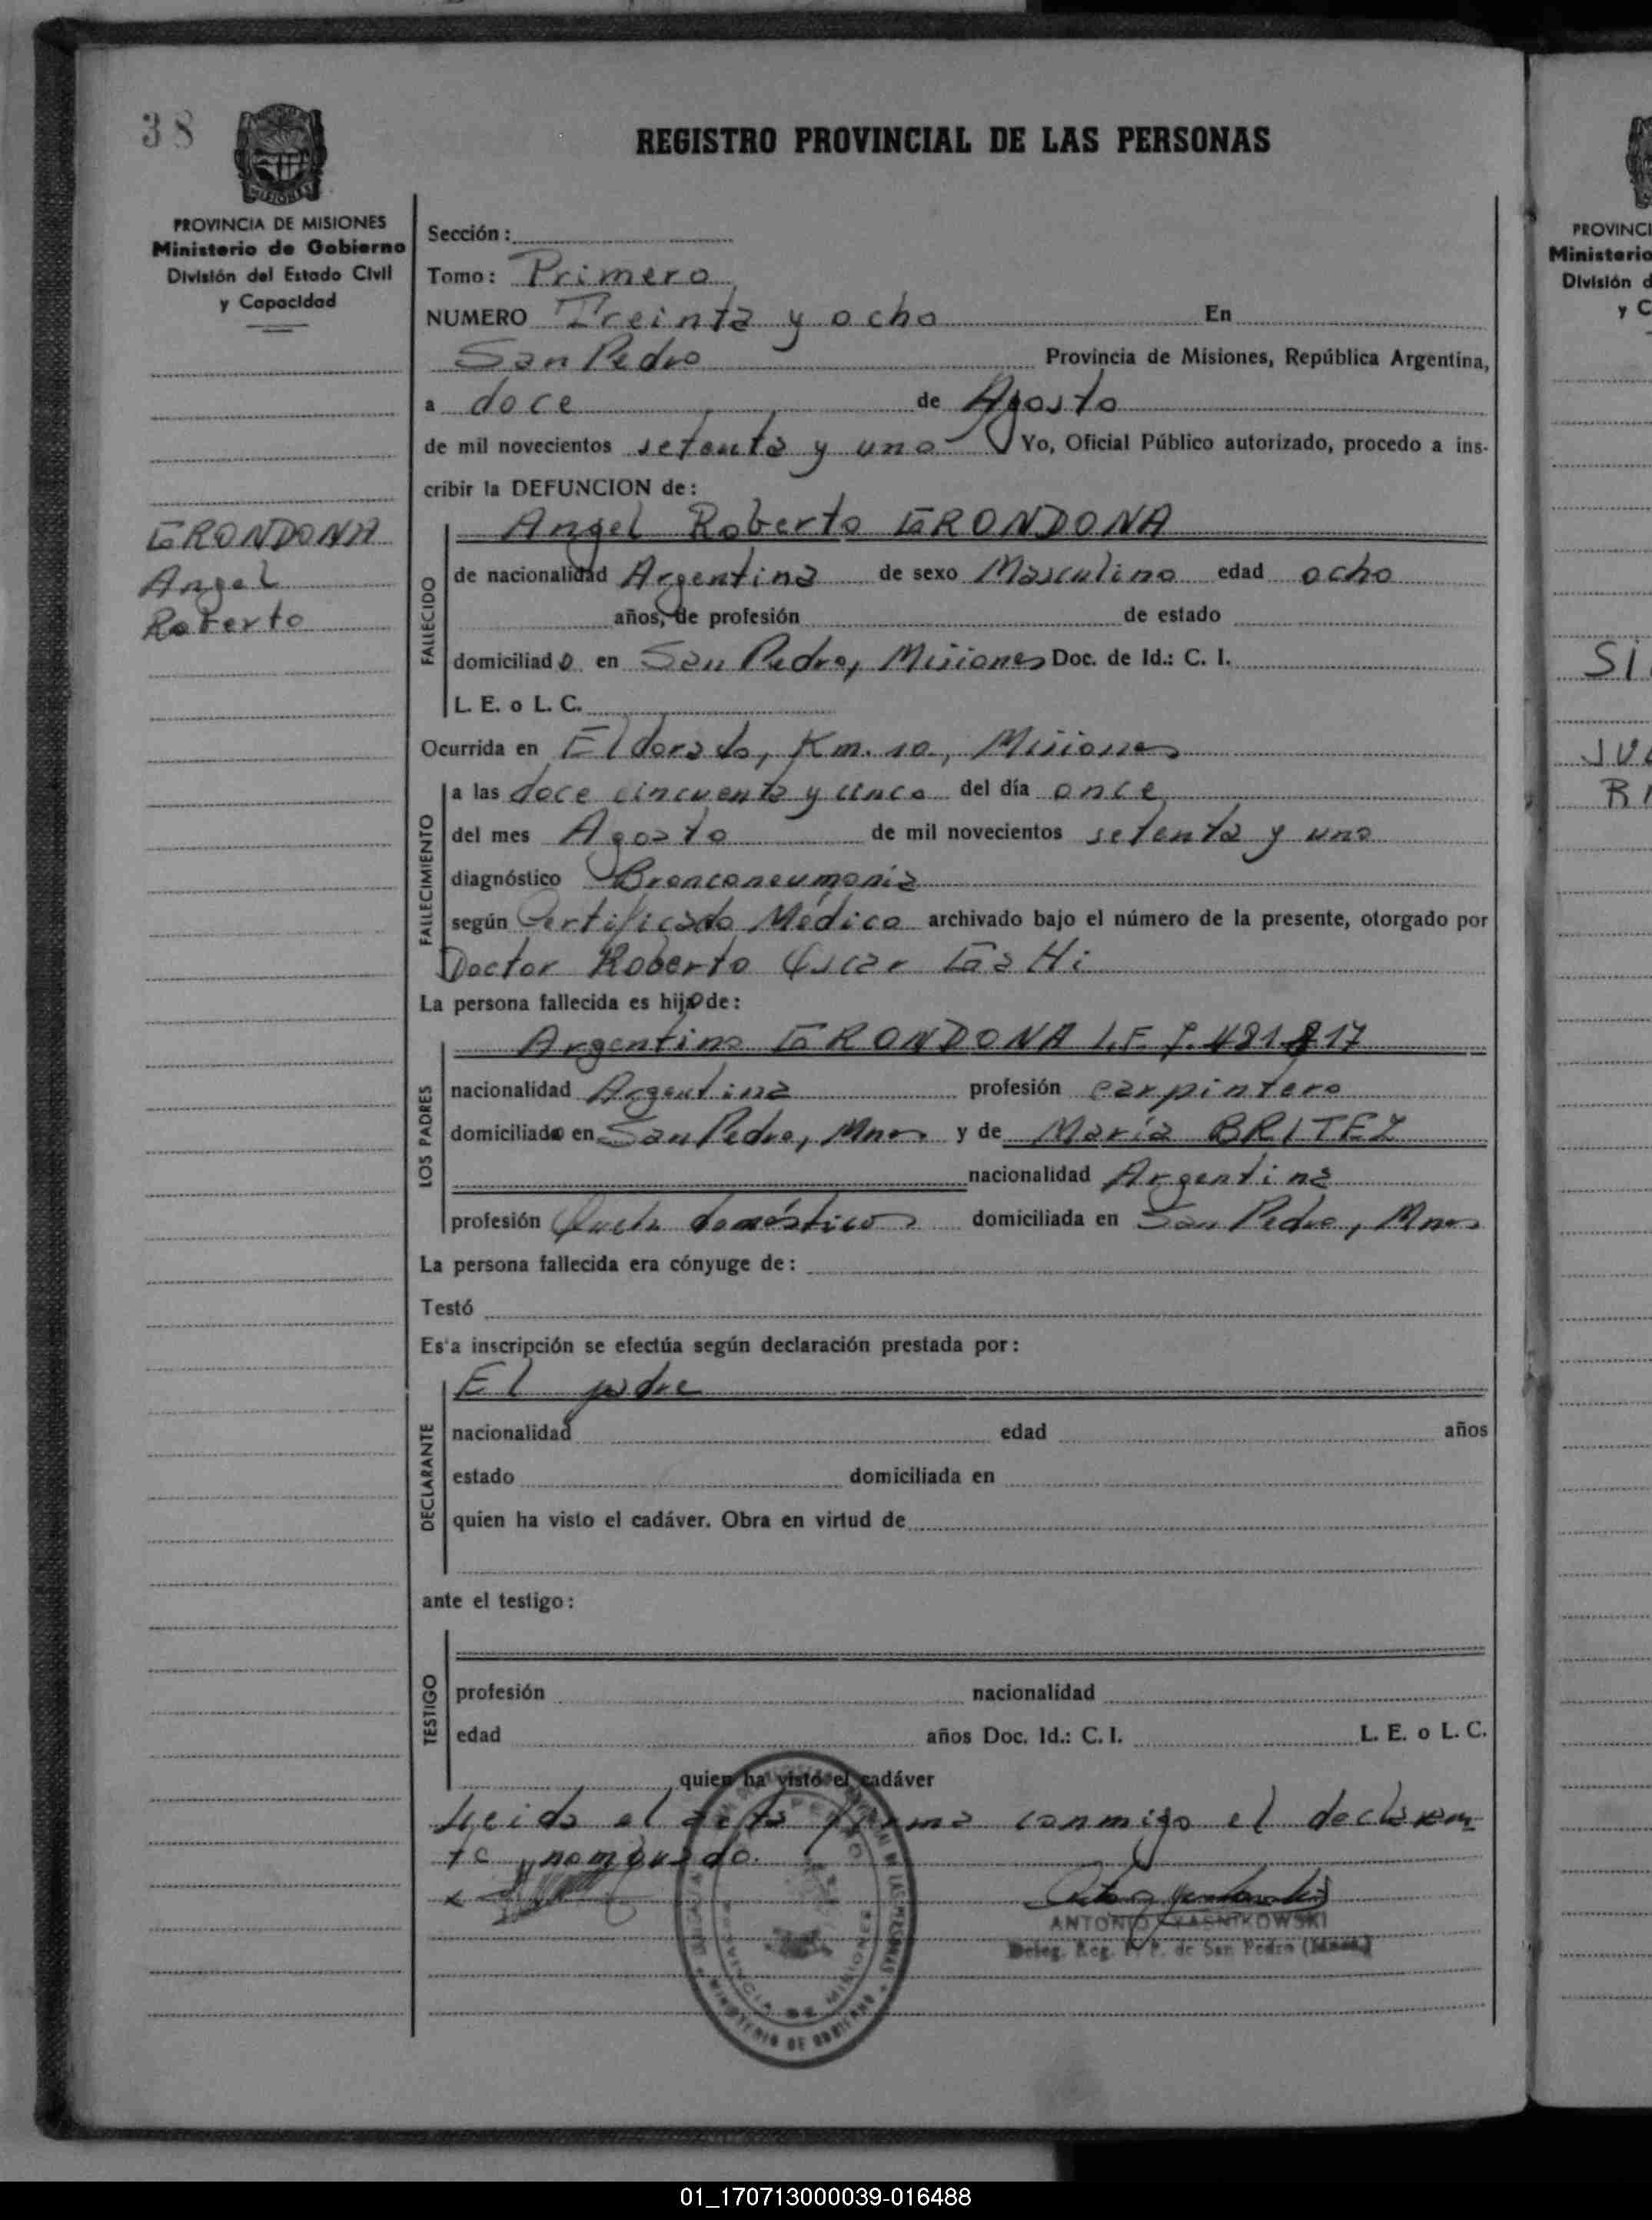 38
REGISTRO PROVINCIAL DE LAS PERSONAS
PROVINCIA DE MISIONES
Ministerio de Gobierno
División del Estado Civil
y Capacidad
GRONDONA
Angel
Roberto
Sección:
Tomo: Primero
NUMERO Treinta y ocho En
San Pedro Provincia de Misiones, República Argentina,
a doce de Agosto
de mil novecientos setenta y uno Yo, Oficial Público autorizado, procedo a ins-
cribir la DEFUNCION de:
Angel Roberto GRONDONA
FALLECIDO
de nacionalidad Argentina de sexo Masculino edad ocho
años, de profesión de estado
domiciliado en San Pedro, Misiones Doc. de Id.: C. I.
L. E. o L. C.
Ocurrida en Eldorado, Km. 10, Misiones
FALLECIMIENTO
a las doce cincuenta y cinco del día once
del mes Agosto de mil novecientos setenta y uno
diagnóstico Bronconeumonia
según Certificado Médico archivado bajo el número de la presente, otorgado por
Doctor Roberto Oscar
La persona fallecida es hijo de:
LOS PADRES
Argentino GRONDONA L.E. 7.481.817
nacionalidad Argentina profesión carpintero
domiciliado en San Pedro, Mnes y de María BRITEZ
nacionalidad Argentina
profesión Queh. domésticos domiciliada en San Pedro, Mnes
La persona fallecida era cónyuge de:
Testó
Es'a inscripción se efectúa según declaración prestada por:
DECLARANTE
El padre
nacionalidad edad años
estado domiciliada en
quien ha visto el cadáver. Obra en virtud de
ante el testigo:
TESTIGO
profesión nacionalidad
edad años Doc. Id.: C. I. L. E. o L. C.
quien ha visto el cadáver
Leida el acta firma conmigo el declaran
te nombrado.
x
ANTONIO YASNIKOWSKI
Deleg. Reg. P. P. de San Pedro (Mnes.)
PROVINCIA DE MISIONES
MINISTERIO DE GOBIERNO
PROVINCI
Ministerio
División d
y C
SI
JU
R
01_170713000039-016488